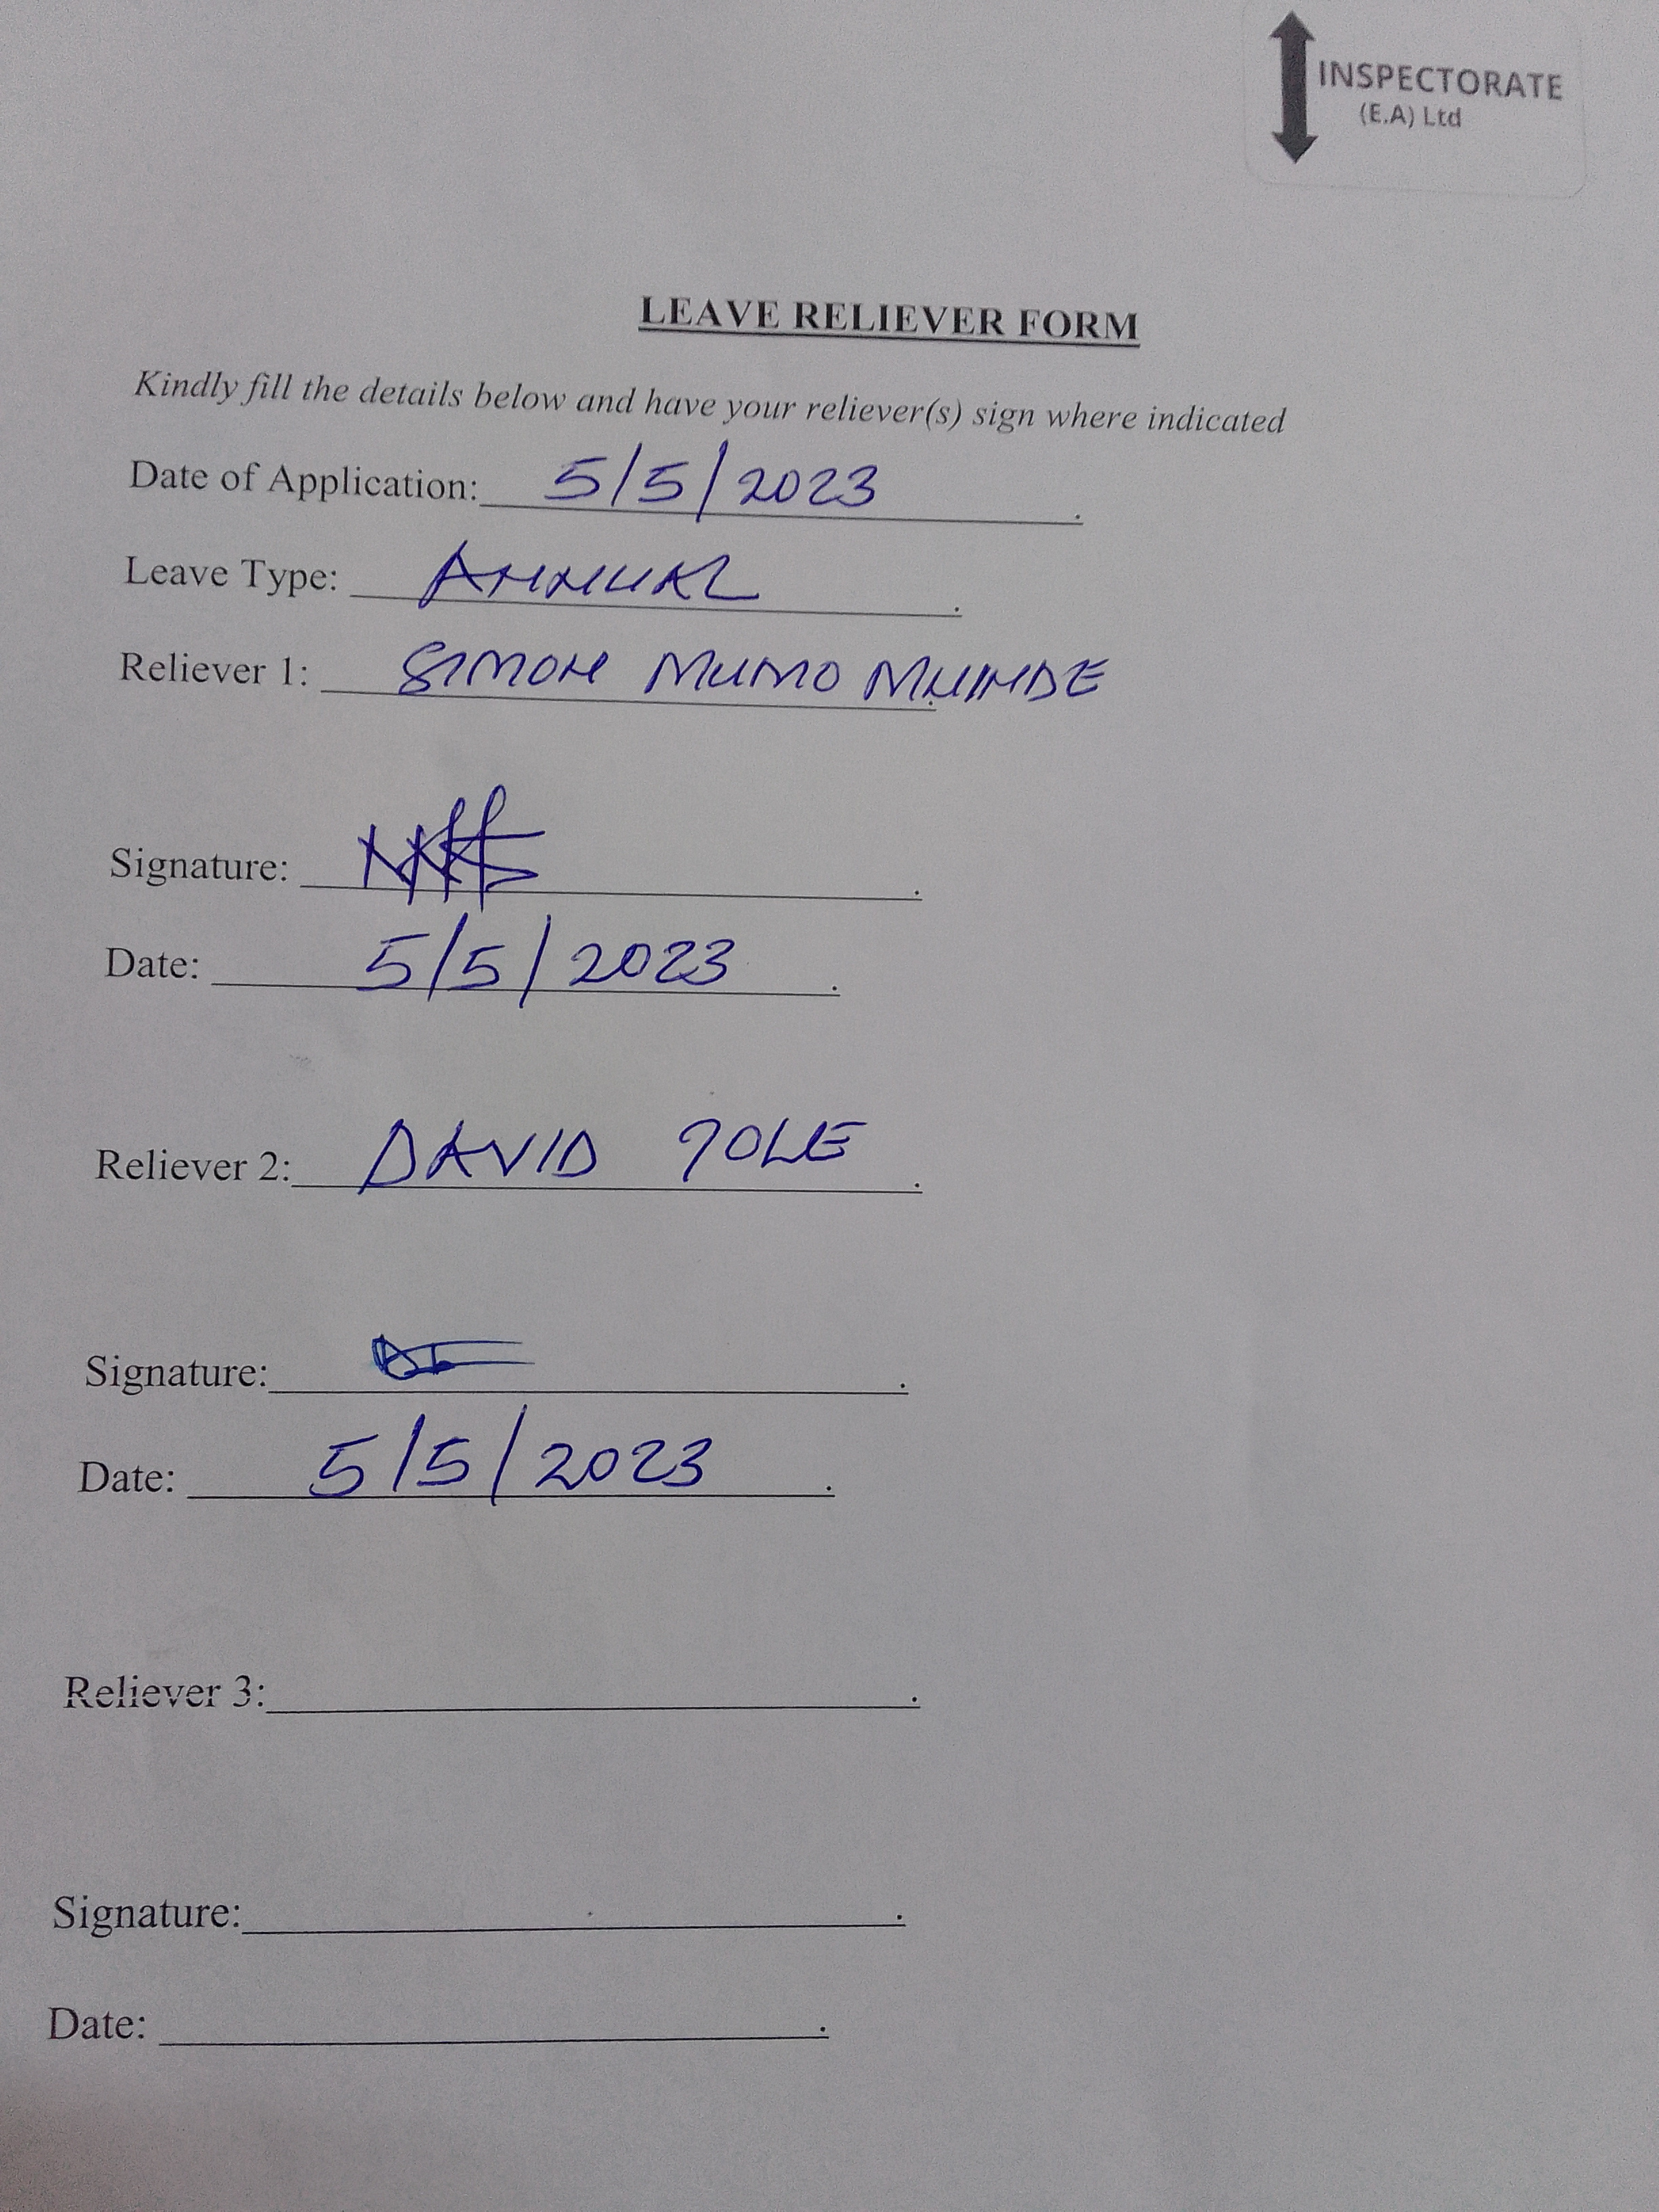 INSPECTORATE
(E.A) Ltd
LEAVE RELIEVER FORM
Kindly fill the details below and have your reliever(s) sign where indicated
Date of Application: 5/5/2023
Leave Type: ANNUAL
Reliever 1: SIMON MUMO MUINDE
Signature:
Date: 5/5/2023
Reliever 2: DAVID TOLE
Signature:
Date: 5/5/2023
Reliever 3:
Signature:
Date: